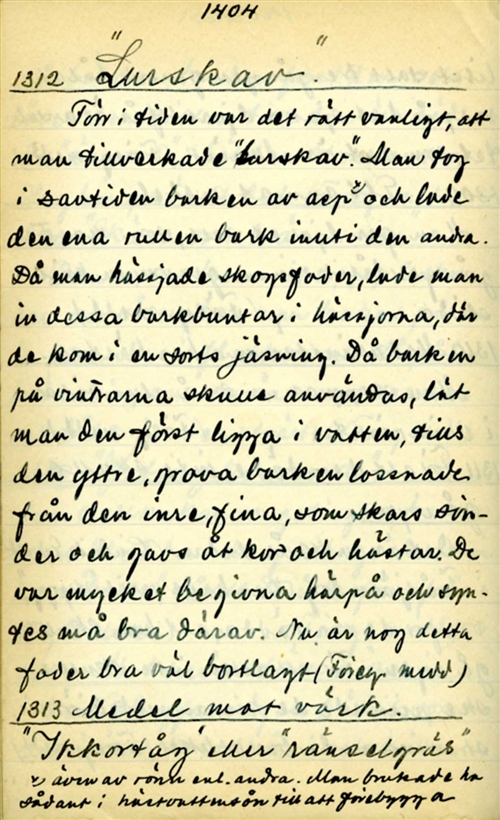 1404
1312 "Lurskav".
Förr i tiden var det rätt vanligt, att
man tillverkade "Lurskav". Man tog
i savtiden barken av asp x) och lade
den ena rullen bark inuti den andra.
Då man hässjade skogsfoder, lade man
in dessa barkbuntar i hässjorna, där
de kom i en sorts jäsning. Då barken
på vintrarna skulle användas, lät
man den först ligga i vatten, tills
den yttre, grova barken lossnade
från den inre, fina, som skars sön-
der och gavs åt kor och hästar. De
var mycket begivna härpå och syn-
tes må bra därav. Nu är nog detta
foder bra väl bortlagt (Föreg. medd.)
1313 Medel mot värk.
"Ikkortåg" eller "ränselgräs"
x) även av rönn enl. andra. Man brukade ha
sådant i hästvattensån till att förebygga